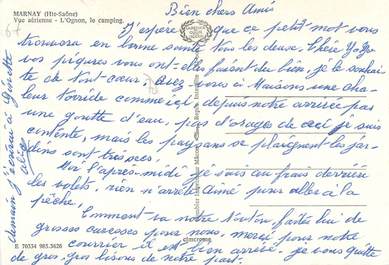 MARNAY (Hte-Saône)
Vue aérienne - L'Ognon, le camping.
Bien chers Amis
J'espère que ce petit mot vous
trouvera en bonne santé tous les deux. Chère
vos piqures vous ont-elles faisant du bien, je le souhaite
de tout cœur. Avez-vous à Maisons une chaleur
torride comme ici depuis notre arrivée pas
une goutte d'eau, pas d'orages de ceci je suis
contente, mais les paysans se plaignent les jardins
sont très secs.
Moi l'après-midi je suis au frais derrière
les volets, rien n'arrête Aimé pour aller à la
pêche.
Comment va notre faites lui de
grosses caresses pour nous, merci pour notre
courrier il est bien arrivé. je vous quitte
de gros, gros bisous de notre part.
demain j'écrirai à Ginette
E 70334 985.3626
cimcrome